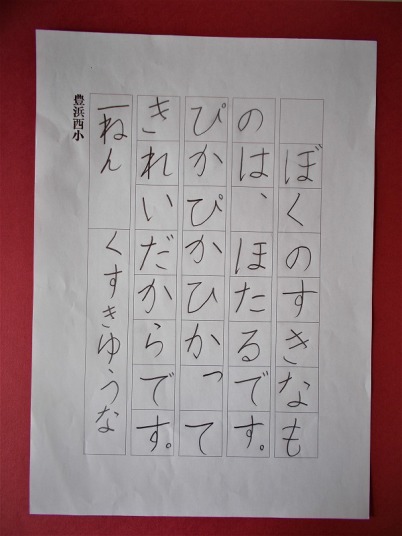 ぼくのすきなも
のは、ほたるです。
ぴかぴかひかって
きれいだからです。
一ねん くすきゆうな
豊浜西小